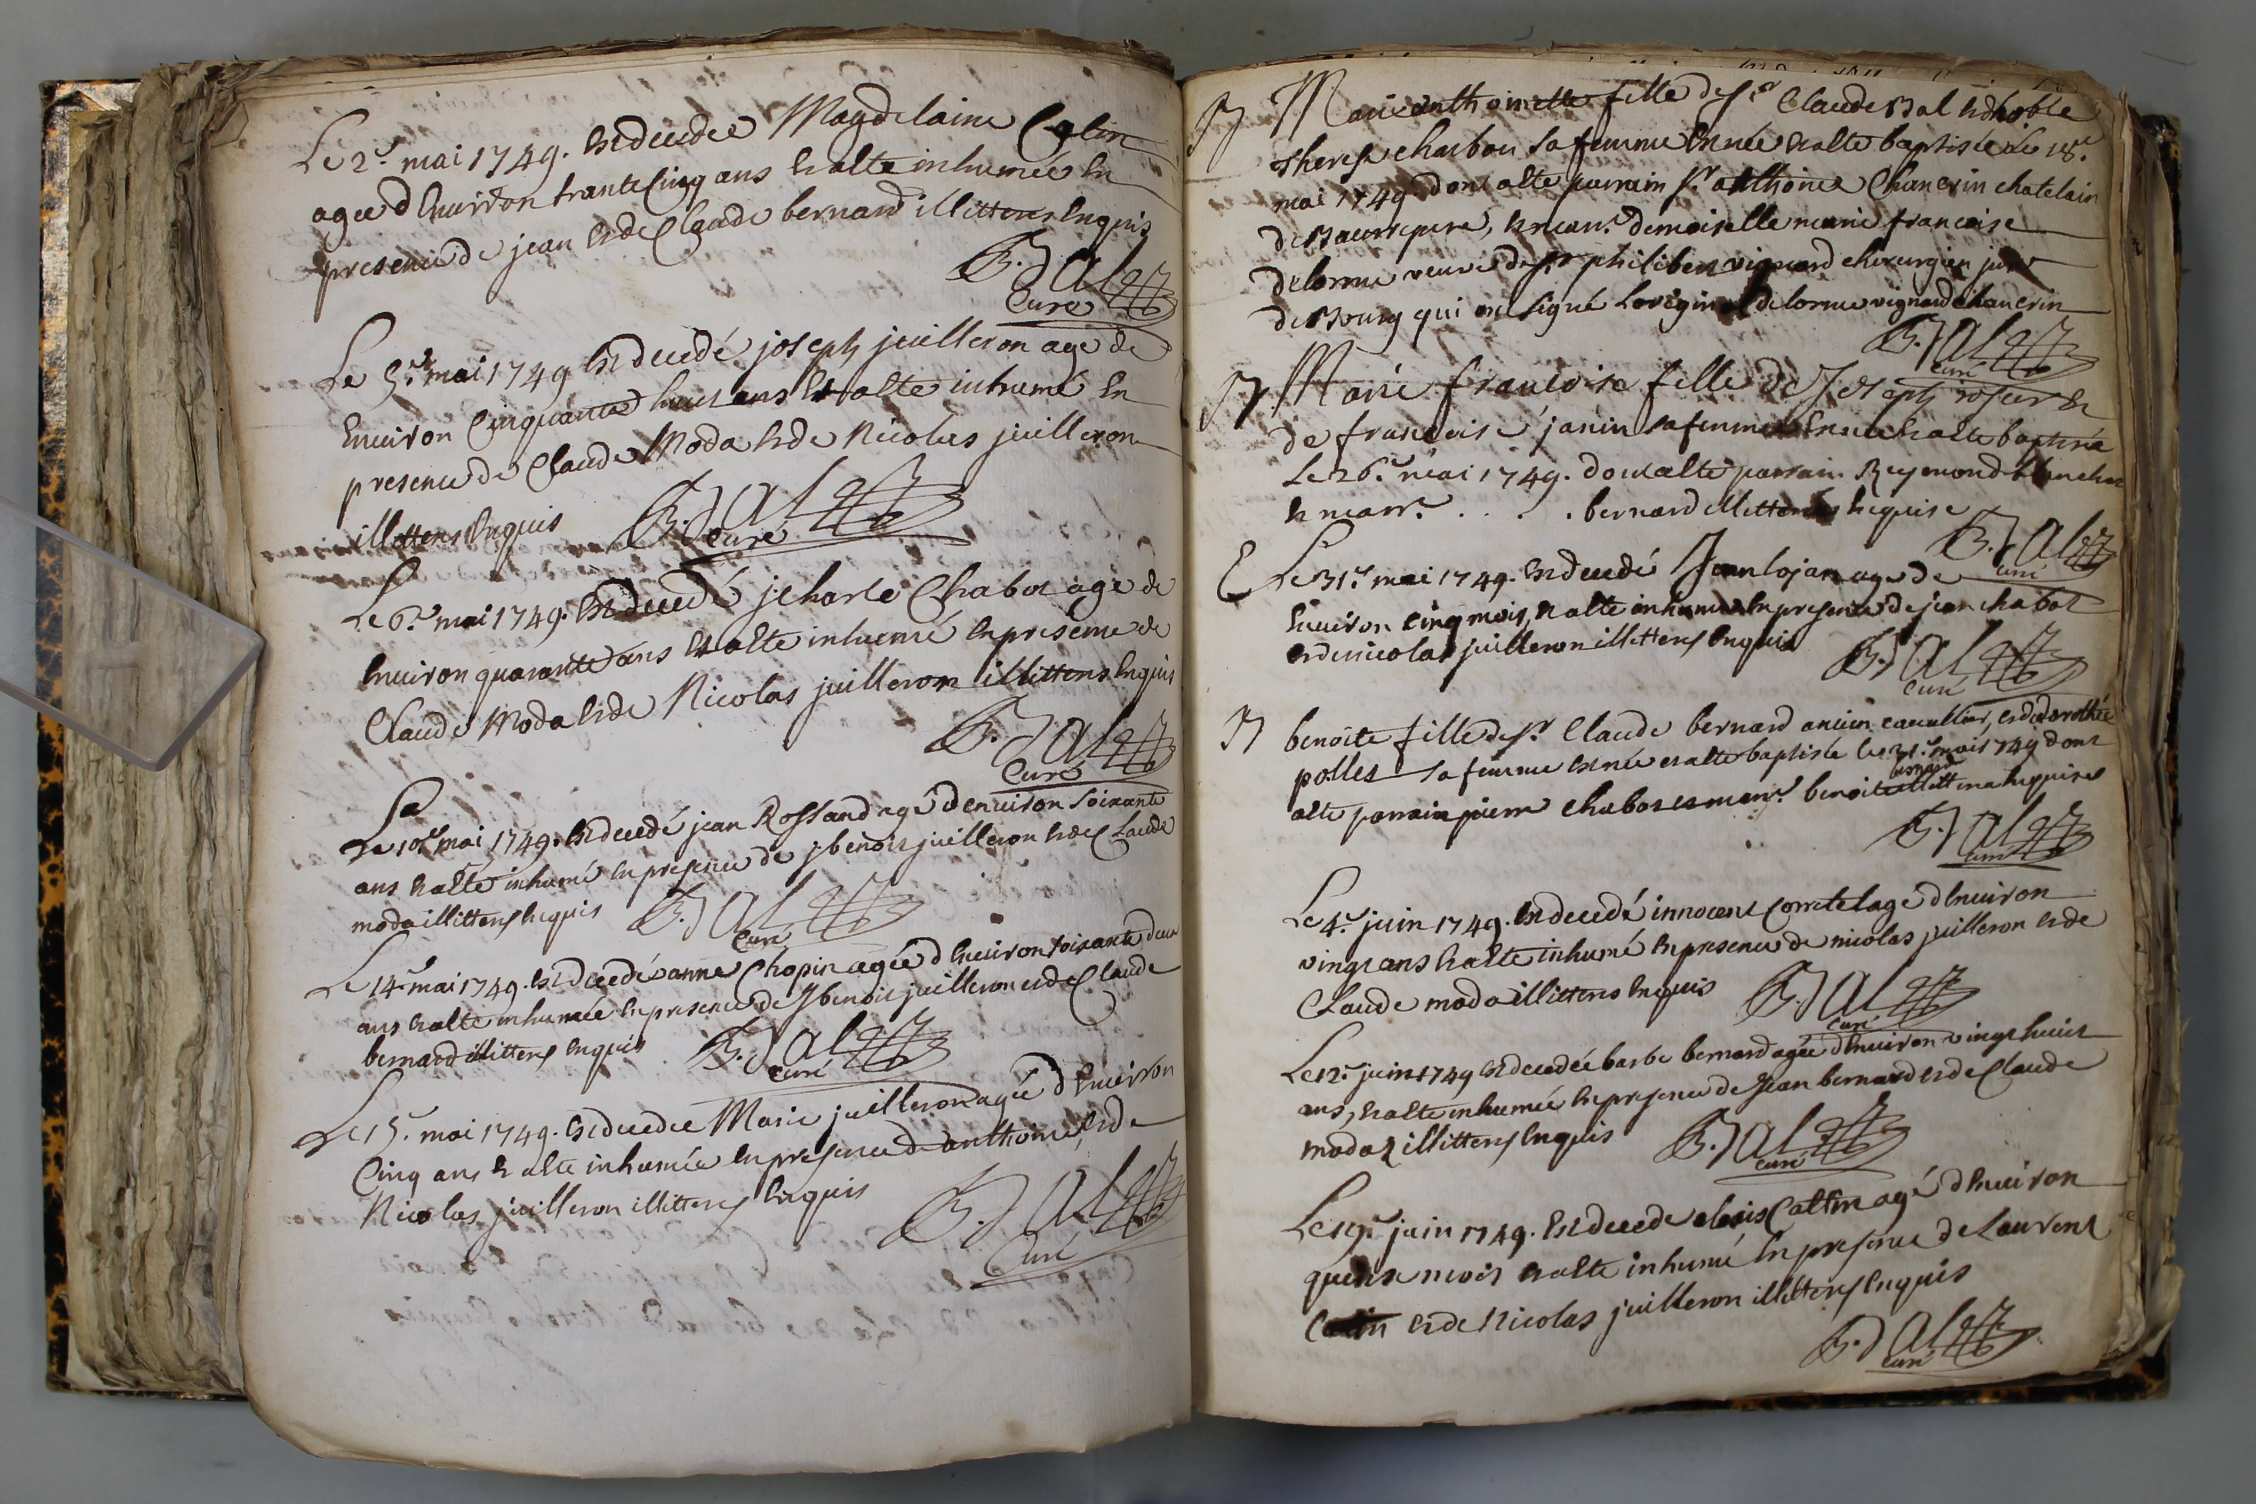 Le 2e. mai 1749. Est decedée Magdelaine Catin
agée d'Environ trante Cinq ans Et a êté inhumée En
presence de jean Et de Claude bernard illittens Enquis
B. Dal
Curé
Le 5e. mai 1749 Est decedé joseph juilleron agé de
Environ Cinquante huit ans Et a êté inhumé En
presence de Claude Moda Et de Nicolas juilleron
illittens Enquis B. Dal
Curé
Le 6e. mai 1749. Est decedé jcharle Chabot agé de
Environ quarante ans Et a êté inhumé En presence de
Claude Moda Et de Nicolas juilleron illittens Enquis
B. Dal
Curé
Le 10e mai 1749. Est decedé jean Rossand agé d'environ soixante
ans Et a êté inhumé En presence de jbenoit juilleron Et de Claude
moda illittens Enquis B. Dal
Curé
Le 14e mai 1749. Est decedée anne Chopin agée d'Environ soixante deux
ans Et a êté inhumée En presence de Jbenoit juilleron et de Claude
bernard illittens Enquis B. Dal
Curé
Le 15e. mai 1749. Est decedée Marie juilleron agée d'Environ
Cinq ans Et a êté inhumée En presence d'anthoine, Et de
Nicolas juilleron illittens Enquis
B. Dal
Curé
B Marie anthoinette fille de Sr Claude Bal Et de
Therese charbon sa femme Est née Et a êté baptisée Le 18e.
mai 1749. dont a êté parrain Sr anthoine Chancrin chatelain
de Beaurepere, Et marr.e demoiselle marie francoise
delorme veuve de Sr philibert vignard chirurgien juré
de Bourg qui ont signé L'original delorme vignard chancrin
B. Dal
curé
B Marie francoise fille de Joseph Et
de francoise janin sa femme Est née Et a êté baptisée
Le 26e. mai 1749. dont a êté parrain Reymond blanchar
Et marr.e . . . . bernard illittens Enquise
B. Dal
curé
E Le 31e. mai 1749. Est decedé Jean lojan agé de
Environ cinq mois, Et a êté inhumé En presence de jean chabot
et de nicolas juilleron illittens Enquis
B. Dal
Curé
B benoite fille de Sr. Claude bernard ancien cavallier, et de dorothée
polles sa femme est née et a êté baptisée le 31e. mai 1749 dont
bernard
a êté parrain pierre chabot et marr.e benoite illittens Enquise
B. Dal
curé
Le 4e. juin 1749. Est decedé innocent Comtet agé d'Environ
vingt ans Et a êté inhumé En presence de nicolas juilleron Et de
Claude moda illittens Enquis B. Dal
curé
Le 12e. juin 1749 Est decedée barbe bernard agée d'Environ vingt huit
ans, Et a êté inhumée En presence de Jean bernard et de Claude
modaz illittens Enquis B. Dal
curé
Le 19e. juin 1749. Est decedé Catin agé d'Environ
quinze mois Et a êté inhumé En presence de Laurent
Catin et de Nicolas juilleron illittens Enquis
B. Dal
curé